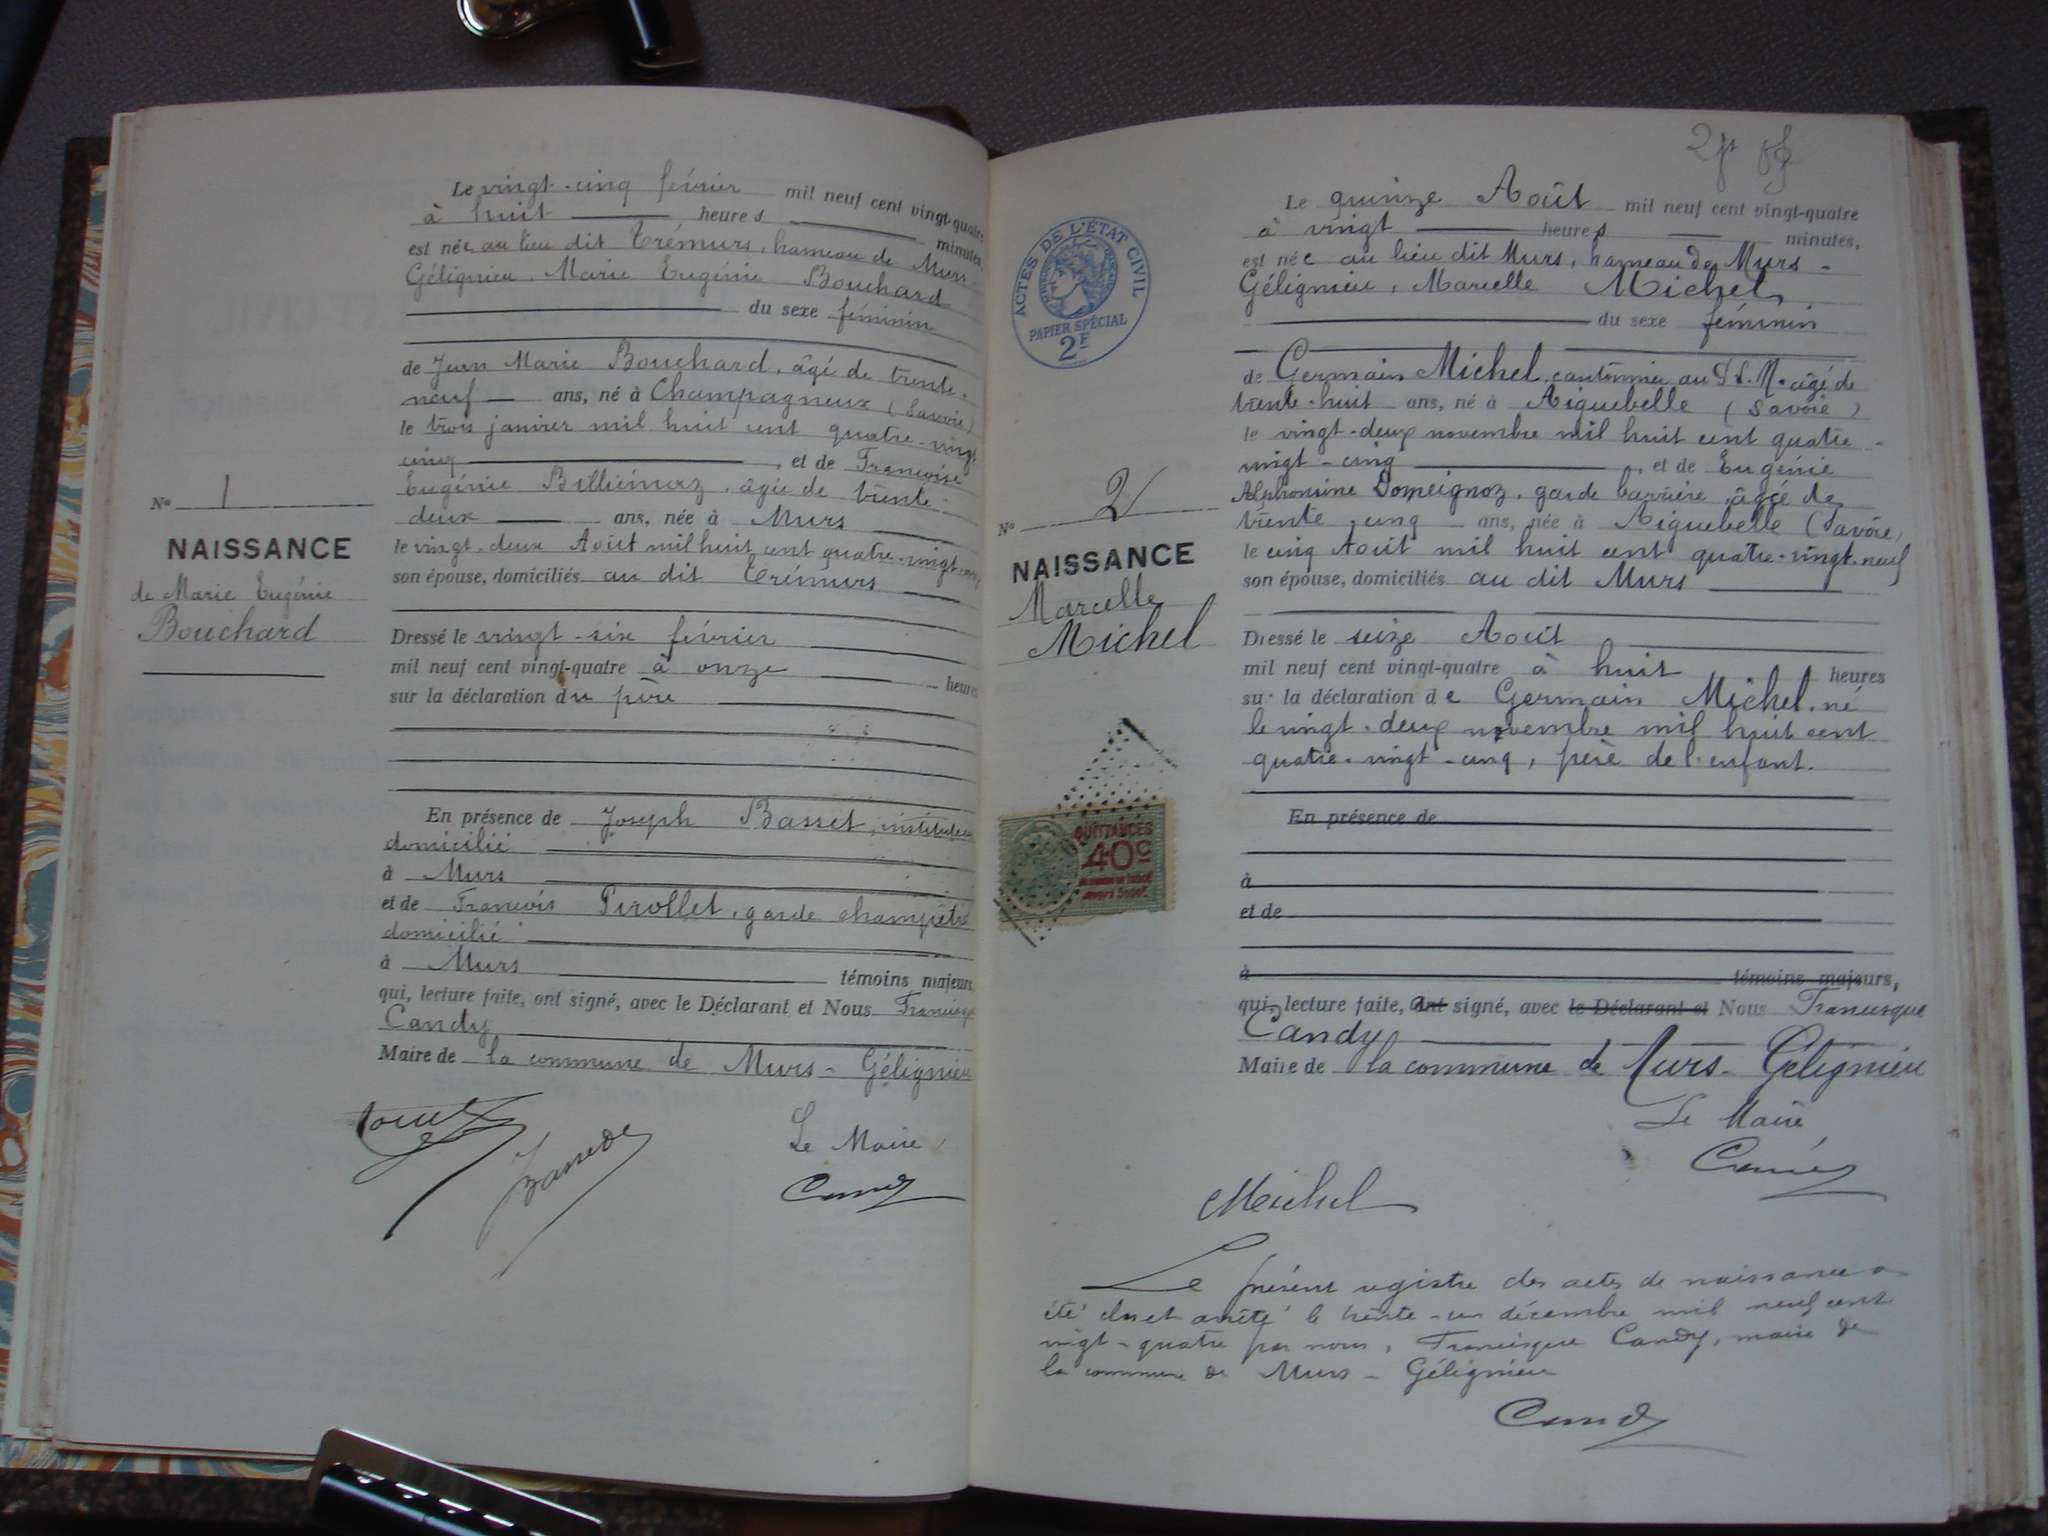 Le vingt-cinq février mil neuf cent vingt-quatre
à huit heures minutes,
est née au lieu dit Trémurs, hameau de Murs
Gélignieu, Marie Eugénie Bouchard
du sexe féminin
de Jean Marie Bouchard, âgé de trente-
neuf ans, né à Champagneux (Savoie)
le trois janvier mil huit cent quatre-vingt
cinq, et de Françoise
Eugénie Billiémaz, âgée de trente-
deux ans, née à Murs
le vingt-deux Août mil huit cent quatre-vingt-
son épouse, domiciliés au dit Trémurs
Dressé le vingt-six février
mil neuf cent vingt-quatre à onze heures
sur la déclaration du père
En présence de Joseph Basset, instituteur
domicilié
à Murs
et de François Pirollet, garde champêtre
domicilié
à Murs témoins majeurs,
qui, lecture faite, ont signé, avec le Déclarant et Nous Francisque
Candy
Maire de la commune de Murs-Gélignieu
Le Maire
Candy
No 1
NAISSANCE
de Marie Eugénie
Bouchard
2
Le quinze Août mil neuf cent vingt-quatre
à vingt heures minutes,
est née au lieu dit Murs, hameau de Murs-
Gélignieu, Marcelle Michel
du sexe féminin
de Germain Michel, cantonnier au P. L. M. âgé de
trente-huit ans, né à Aiguebelle (Savoie)
le vingt-deux novembre mil huit cent quatre-
vingt-cinq, et de Eugénie
Alphonsine Domeignoz, garde barrière, âgée de
trente cinq ans, née à Aiguebelle (Savoie,
le cinq Août mil huit cent quatre-vingt-neuf
son épouse, domiciliés au dit Murs
Dressé le seize Août
mil neuf cent vingt-quatre à huit heures
sur la déclaration de Germain Michel, né
le vingt-deux novembre mil huit cent
quatre-vingt-cinq, père de l'enfant.
En présence de
à
et de
à témoins majeurs,
qui, lecture faite, ont signé, avec le Déclarant et Nous Francisque
Candy
Maire de la commune de Murs-Gélignieu
Le Maire
Candy
Michel
Le présent registre des actes de naissance a
été clos et arrêté le trente-un décembre mil neuf cent
vingt-quatre par nous, Francisque Candy, maire de
la commune de Murs-Gélignieu
Candy
ACTES DE L'ÉTAT CIVIL
PAPIER SPÉCIAL
2F
No 2
NAISSANCE
Marcelle
Michel
QUITTANCES
40c